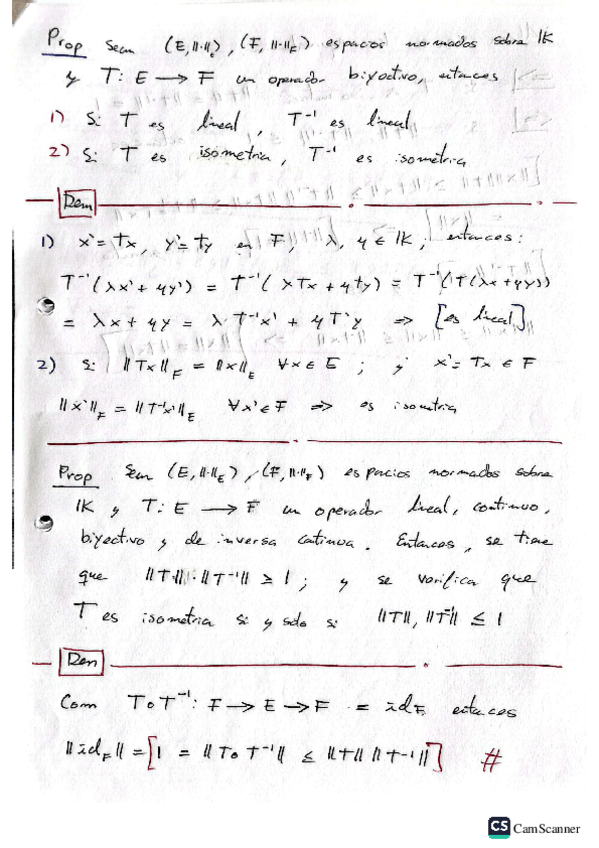 Prop Sean (E,||·||ₑ), (F,||·||_F) espacios normados sobre IK
y T: E ⟶ F un operador biyectivo, entonces
1) Si T es lineal, T⁻¹ es lineal
2) Si T es isometría, T⁻¹ es isometría
Dem
1) x'=Tx, y'=Ty en F, λ, μ ∈ IK; entonces:
T⁻¹(λx'+μy') = T⁻¹(λTx+μTy) = T⁻¹(T(λx+μy))
= λx+μy = λT⁻¹x' + μT⁻¹y' ⇒ [es lineal]
2) Si ||Tx||_F = ||x||_E ∀x∈E ; y x'=Tx ∈ F
||x'||_F = ||T⁻¹x'||_E ∀x'∈F ⇒ es isometría
Prop Sean (E,||·||_E), (F,||·||_F) espacios normados sobre
IK y T: E ⟶ F un operador lineal, continuo,
biyectivo y de inversa continua. Entonces, se tiene
que ||T||·||T⁻¹|| ≥ 1; y se verifica que
T es isometría si y solo si ||T||, ||T⁻¹|| ≤ 1
Dem
Com T∘T⁻¹: F→E→F = id_F entonces
||id_F|| = [1 = ||T∘T⁻¹|| ≤ ||T|| ||T⁻¹||] #
CS CamScanner